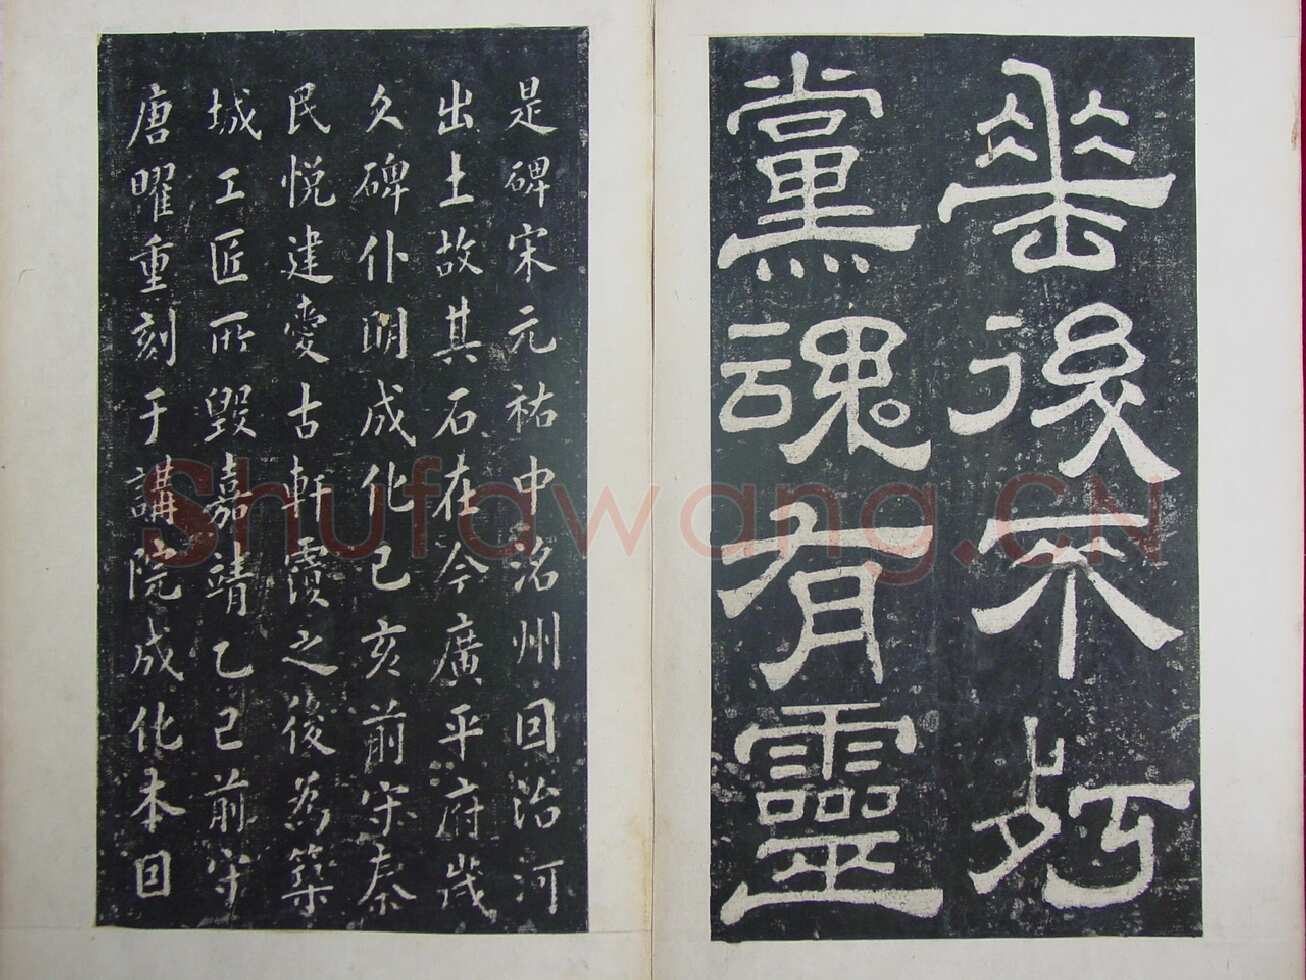 垂後不朽
黨魂有靈
是碑宋元祐中洺州囙治河
出土故其石在今廣平府歲
久碑仆明成化己亥前守秦
民悅建愛古軒覆之後為築
城工匠所毀嘉靖乙巳前守
唐曜重刻于講院成化本囙
Shufawang.CN